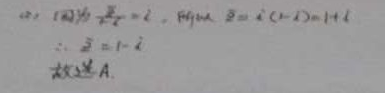 (2) 因为 z̄/(1-i) = i , 所以 z̄ = i(1-i) = 1+i
∴ z̄ = 1-i
故选 A.